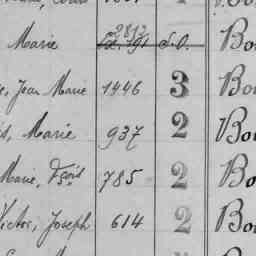 2812
Marie Ed. 791 S.O. Bo
, Jean Marie 1446 3 Bo
, Marie 937 2 Bo
Marie, Fçois 785 2 Bo
Victor, Joseph 614 2 Bo